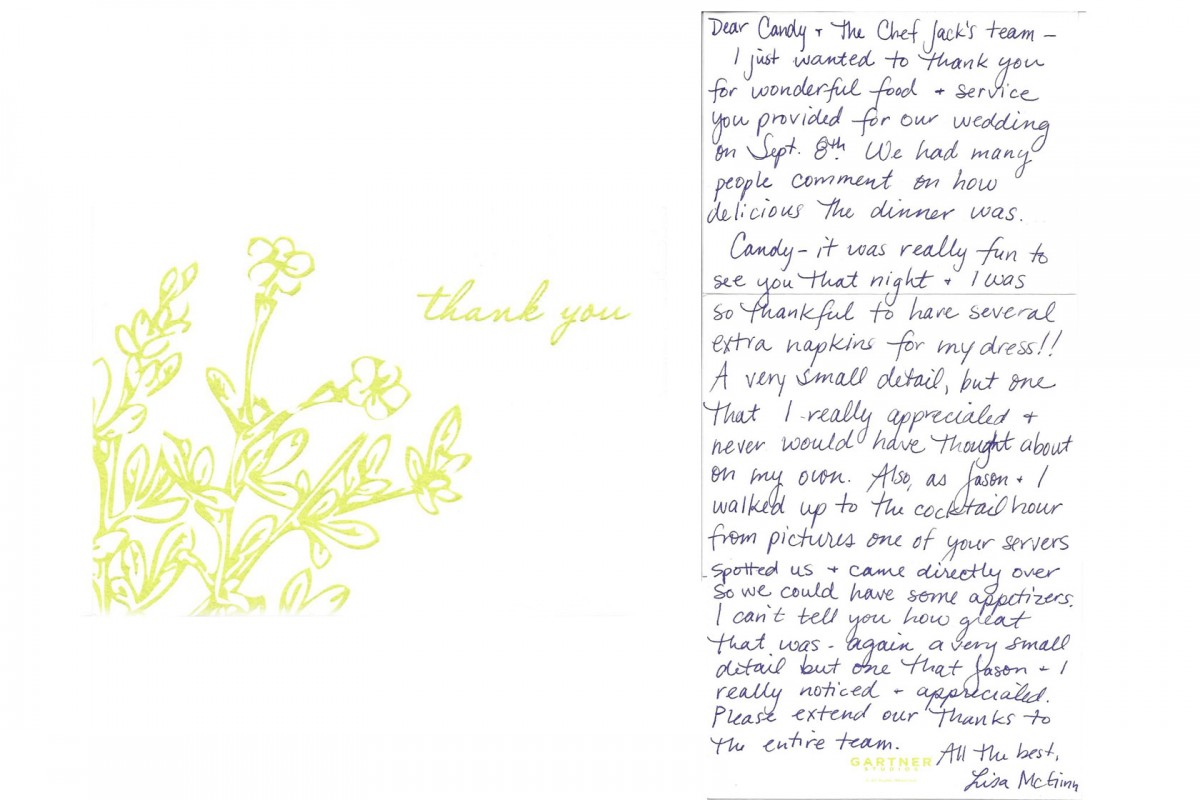 thank you
Dear Candy + The Chef Jack's team -
I just wanted to thank you
for wonderful food + service
you provided for our wedding
on Sept. 8th. We had many
people comment on how
delicious the dinner was.
Candy - it was really fun to
see you that night + I was
so thankful to have several
extra napkins for my dress!!
A very small detail, but one
that I really appreciated +
never would have thought about
on my own. Also, as Jason + I
walked up to the cocktail hour
from pictures one of your servers
spotted us + came directly over
so we could have some appetizers.
I can't tell you how great
that was - again a very small
detail but one that Jason + I
really noticed + appreciated.
Please extend our thanks to
the entire team.
All the best,
Lisa McGinn
GARTNER
STUDIOS